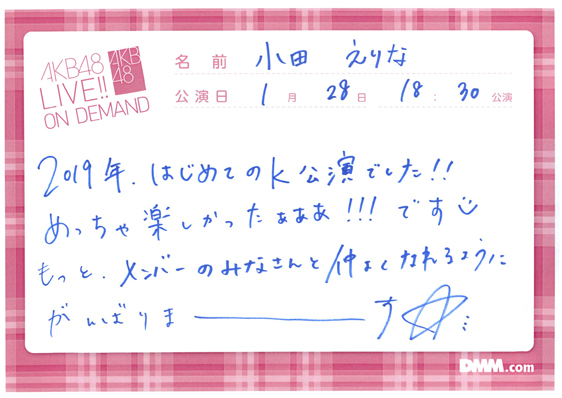 AKB48
LIVE!!
ON DEMAND
AKB
48
名前 小田 えりな
公演日 1月 28日 18:30 公演
2019年、はじめてのK公演でした!!
めっちゃ楽しかったぁぁぁ!!!です
もっと、メンバーのみなさんと仲よくなれるように
がんばりま――――す
DMM.com